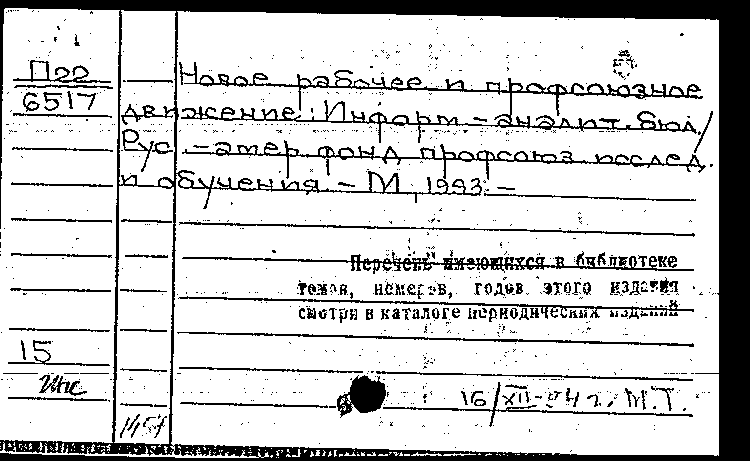 П22
6517
Новое рабочее и профсоюзное
движение: Информ.-аналит. бюл./
Рус.-амер. фонд профсоюз. исслед.
и обучения. - М., 1993. -
Перечень имеющихся в библиотеке
томов, номеров, годов этого издания
смотри в каталоге периодических изданий
15
16/XII-94 г. М.Т.